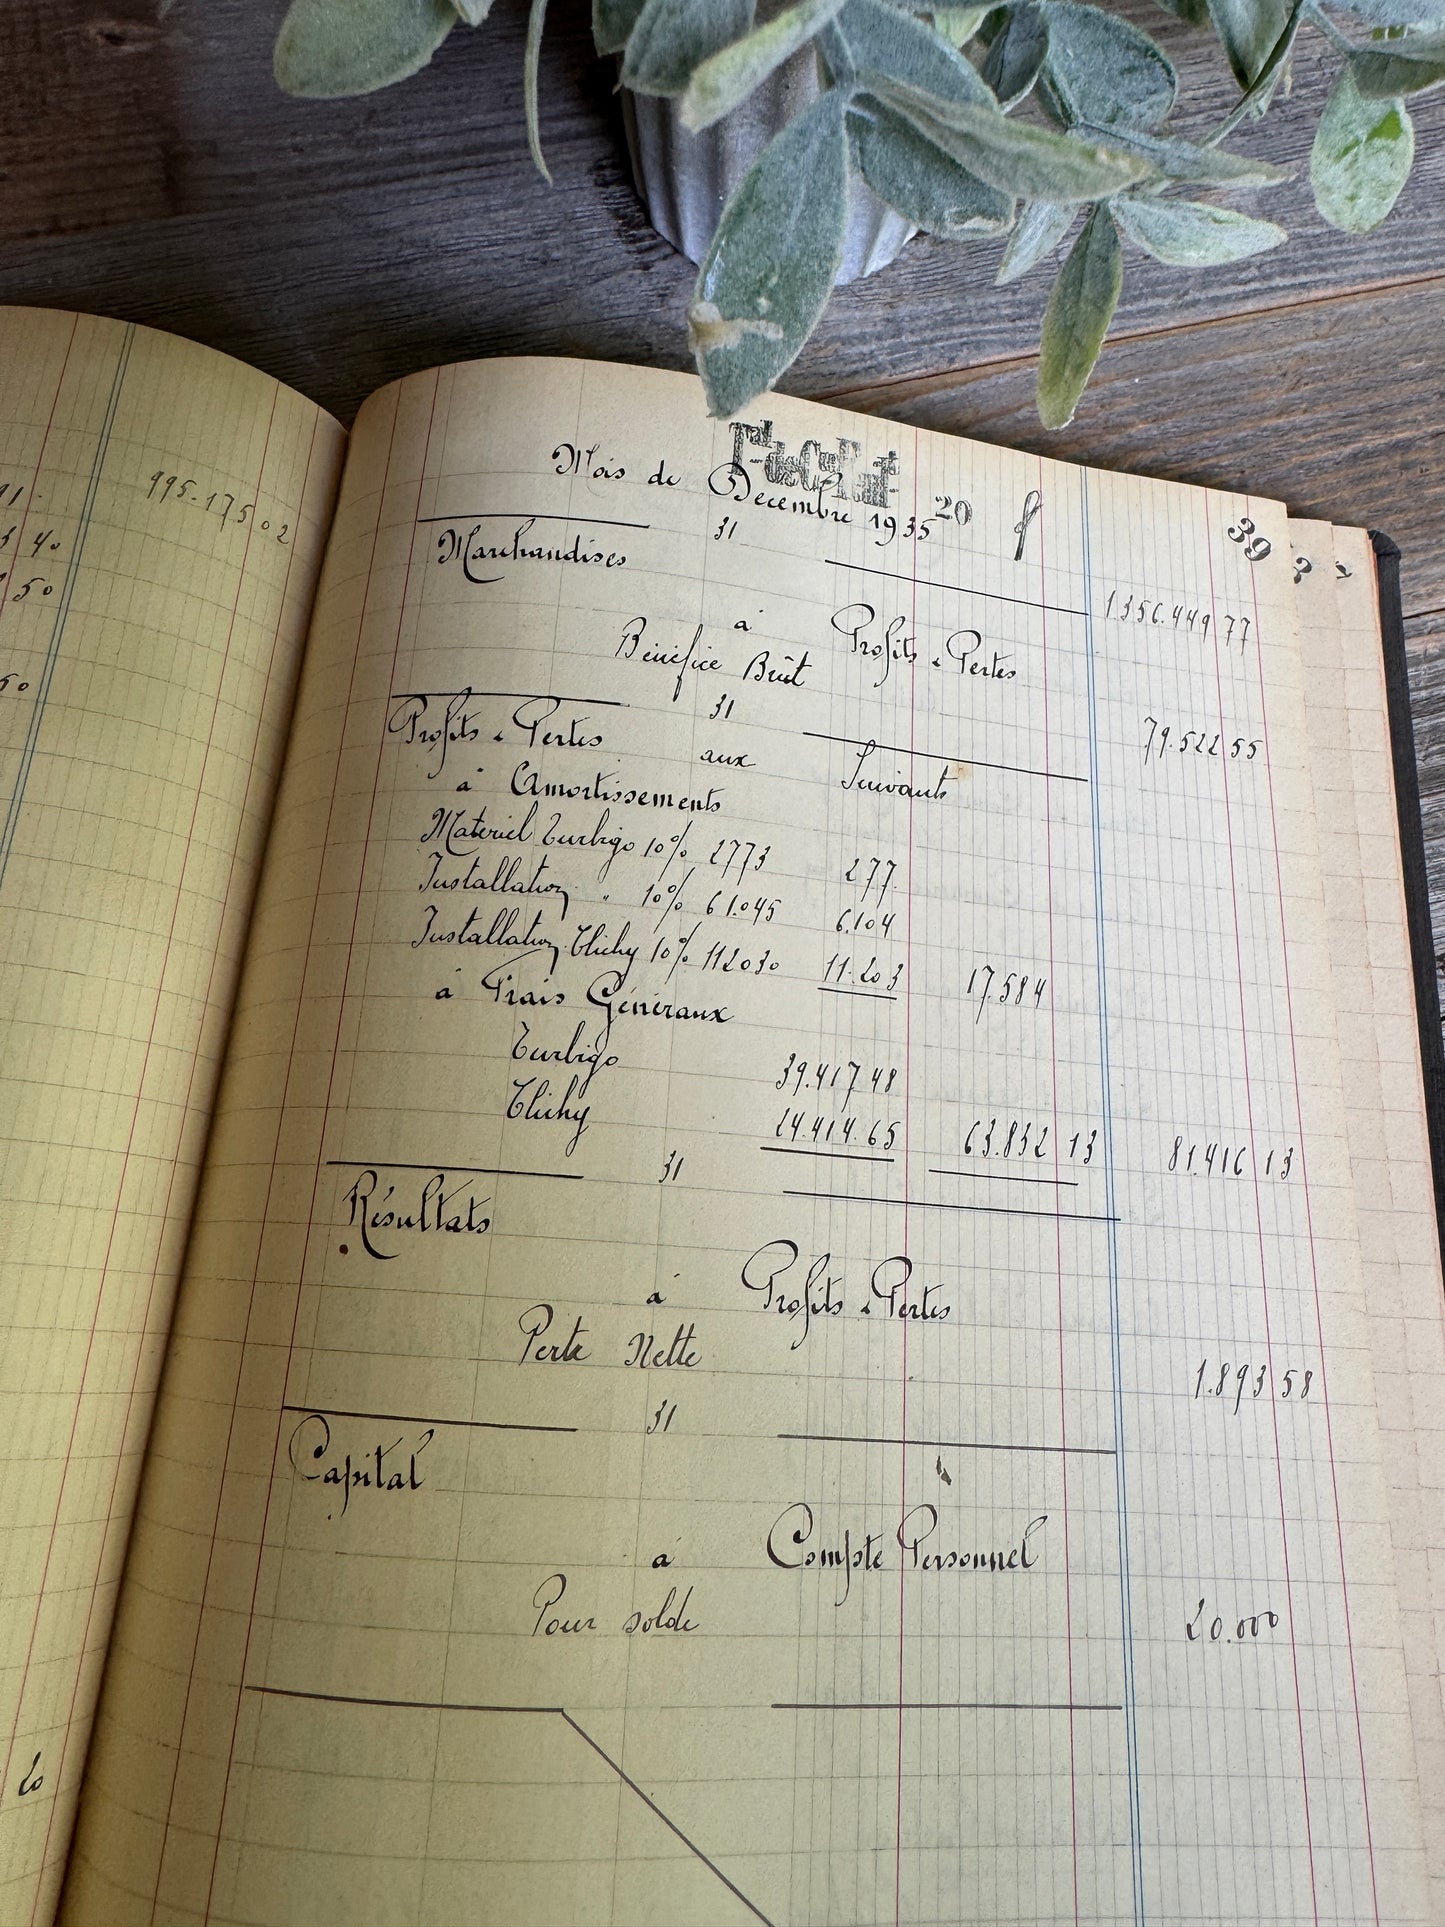 995.175 02
40
50
50
20
Mois de Décembre 1935
20
39
31
Marchandises
1.356.449 77
à Profits & Pertes
Bénéfice Brût
79.522 55
31
Profits & Pertes aux Suivants
à Amortissements
Materiel Turbigo 10% 2773 277
Installation " 10% 61.045 6.104
Installation Clichy 10% 112030 11.203 17.584
à Frais Généraux
Turbigo 39.417 48
Clichy 24.414.65 63.832 13 81.416 13
31
Résultats
à Profits & Pertes
Perte Nette
1.893 58
31
Capital
à Compte Personnel
Pour solde
20.000